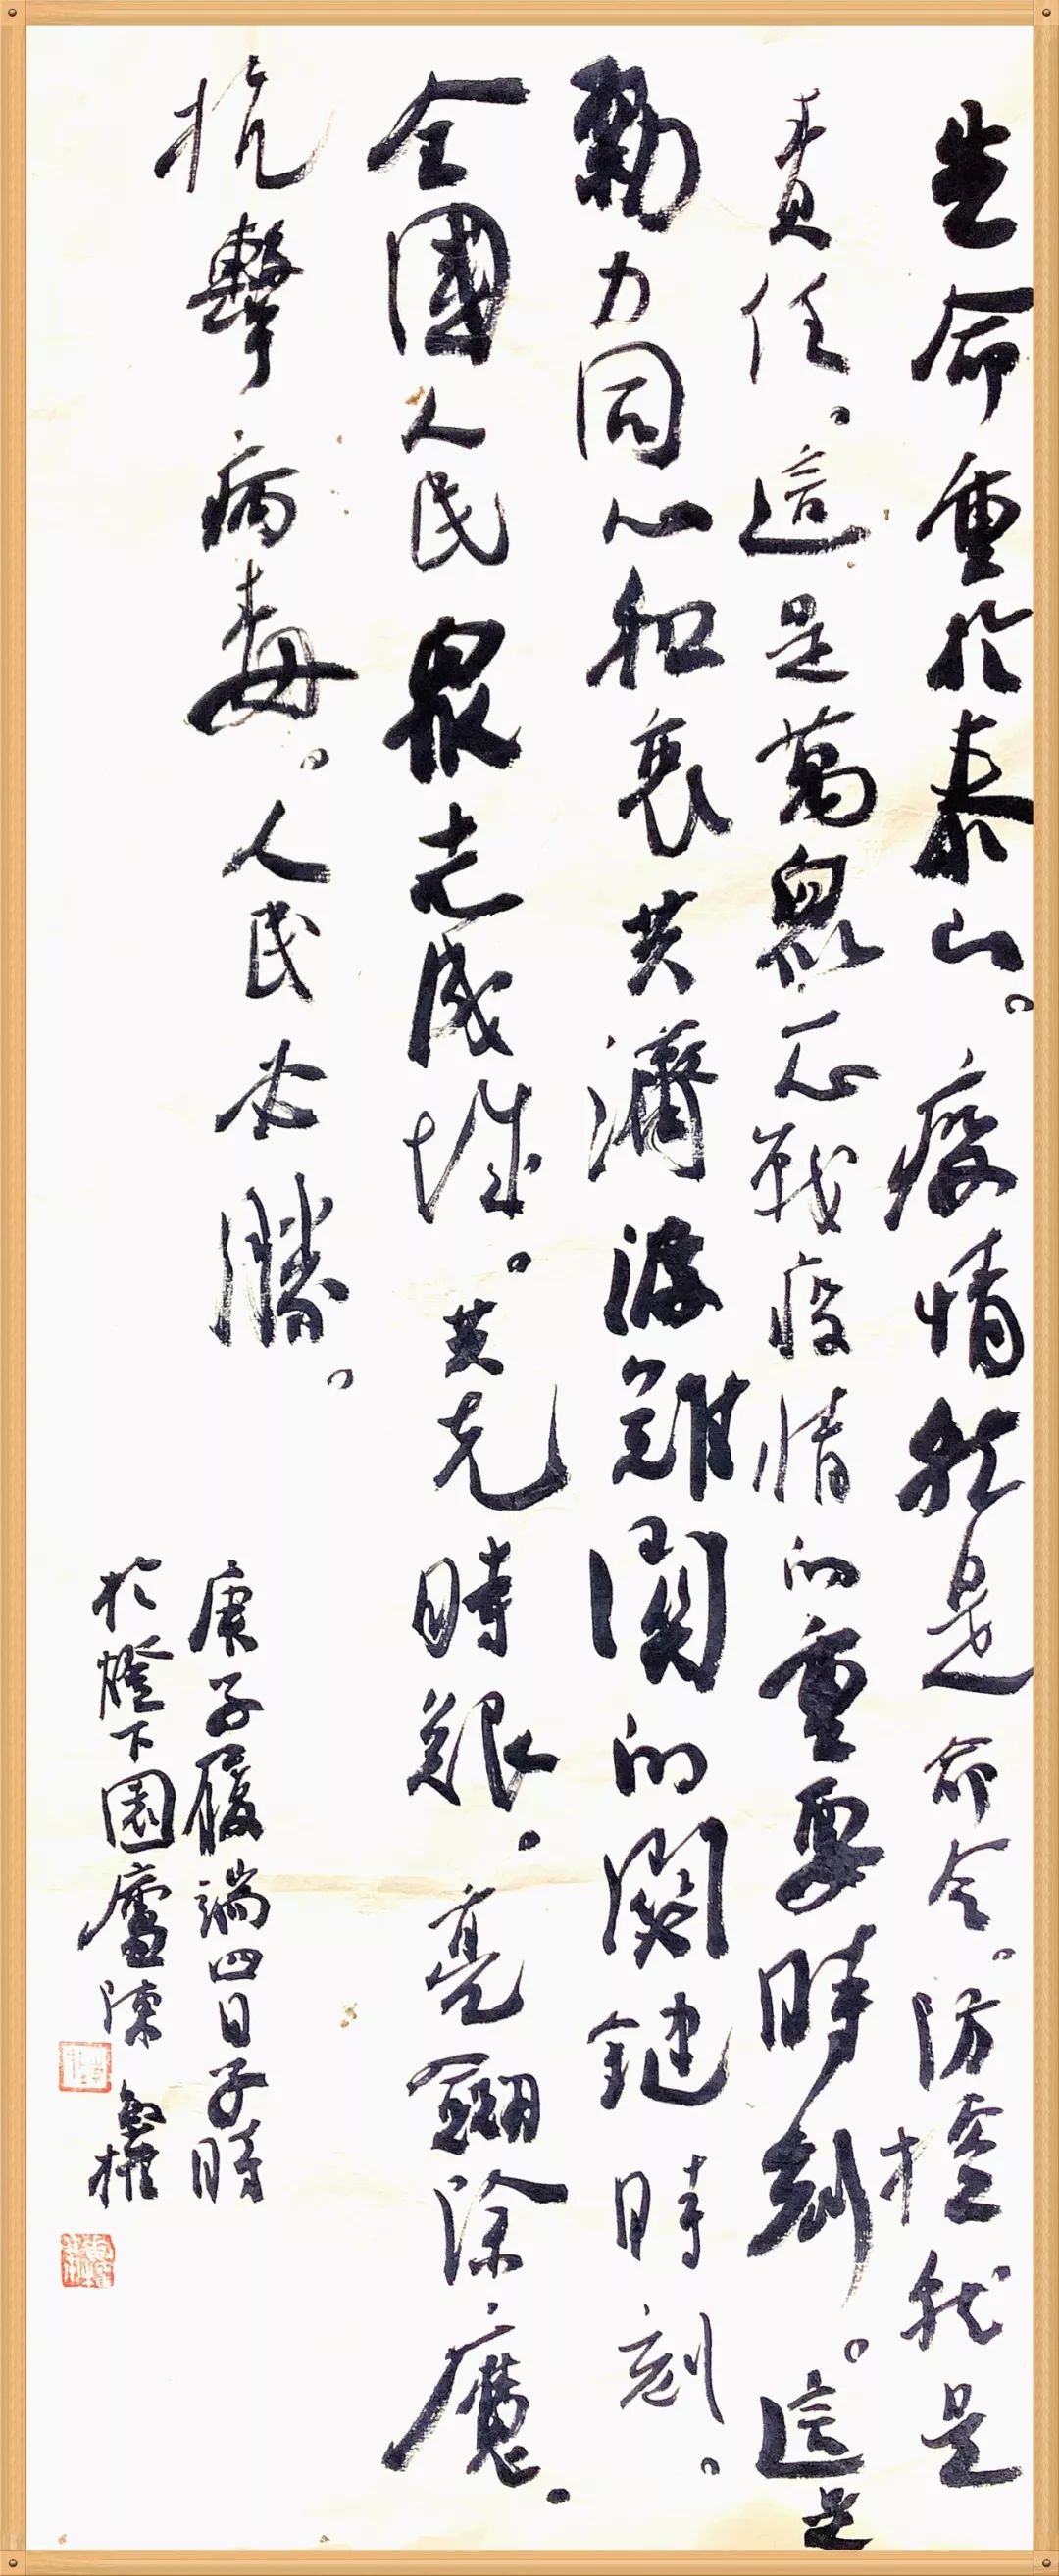 生命重於泰山。疫情就是命令。防控就是
責任，這是萬眾一心戰疫情的重要時刻。這是
勠力同心和衷共濟渡難關的關鍵時刻。
全國人民眾志成城。共克時艱，亮劍除魔，
抗擊病毒。人民必勝。
庚子履端四日子時
於燈下園廬陳權